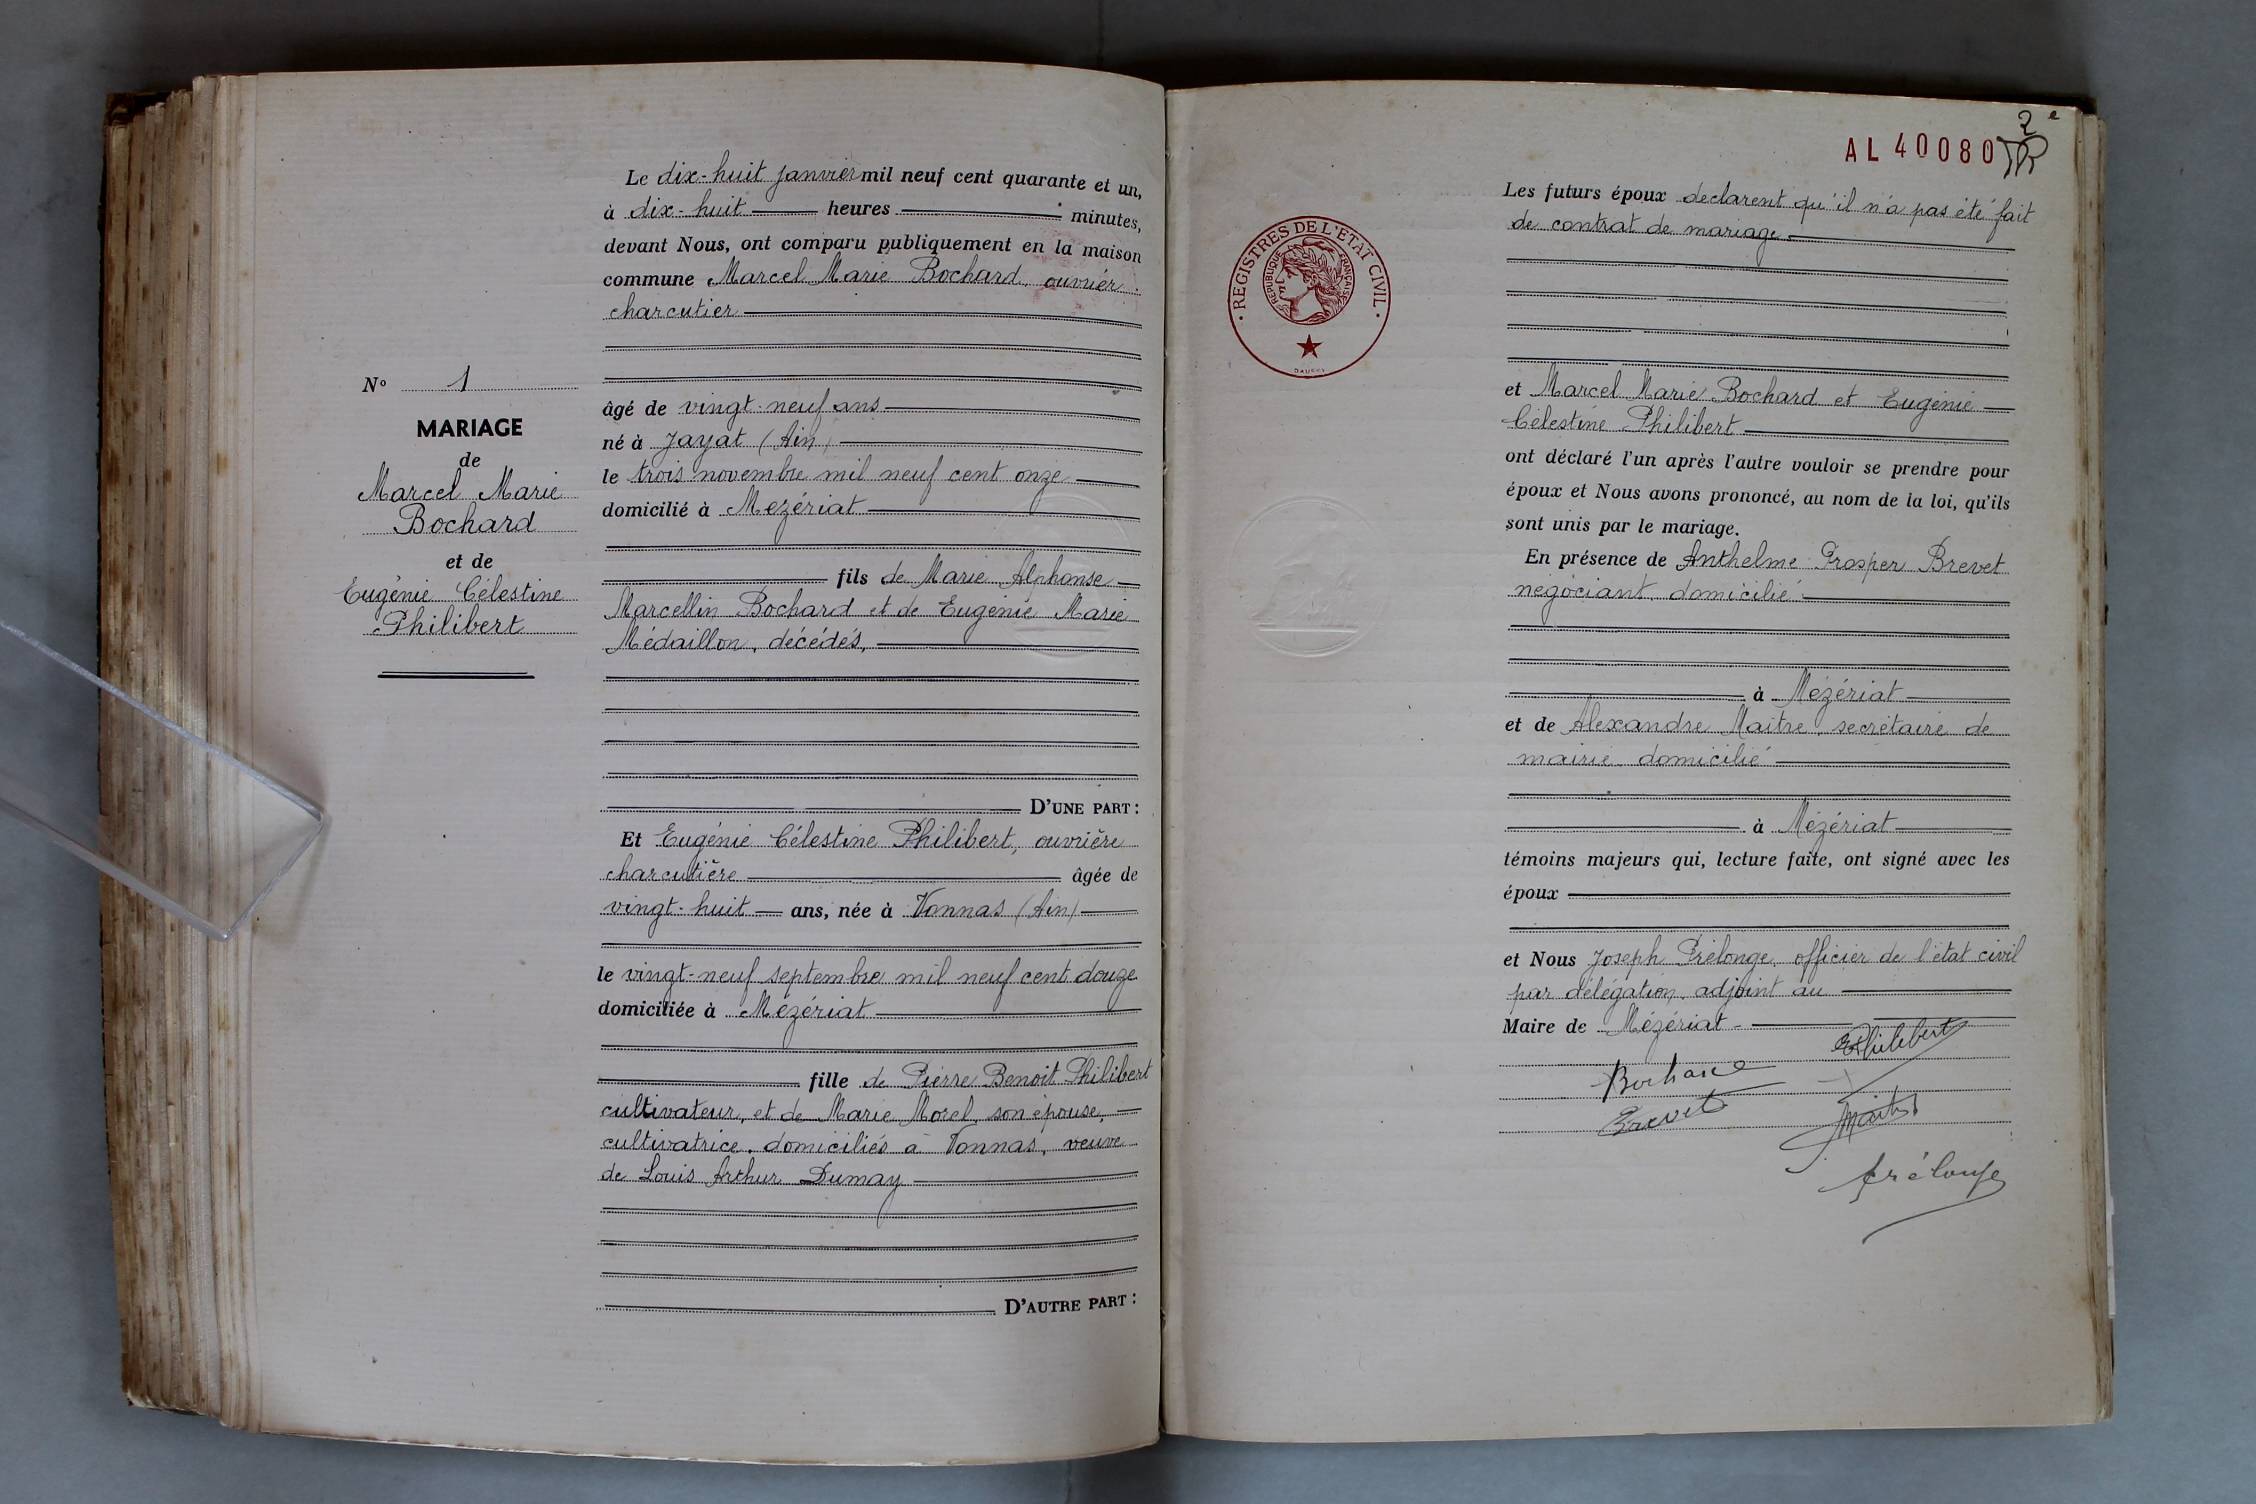 Le dix-huit janvier mil neuf cent quarante et un,
à dix-huit heures minutes,
devant Nous, ont comparu publiquement en la maison
commune Marcel Marie Bochard, ouvrier
charcutier
N° 1
MARIAGE
de
Marcel Marie
Bochard
et de
Eugénie Célestine
Philibert
âgé de vingt-neuf ans
né à Jayat (Ain)
le trois novembre mil neuf cent onze
domicilié à Mézériat
fils de Marie Alphonse
Marcellin Bochard et de Eugénie Marie
Médaillon, décédés,
D'UNE PART :
Et Eugénie Célestine Philibert, ouvrière
charcutière âgée de
vingt-huit ans, née à Vonnas (Ain)
le vingt-neuf septembre mil neuf cent douze
domiciliée à Mézériat
fille de Pierre Benoit Philibert
cultivateur, et de Marie Morel, son épouse,
cultivatrice, domiciliés à Vonnas, veuve
de Louis Arthur Dumay
D'AUTRE PART :
2e
AL 40080
REGISTRES DE L'ETAT CIVIL
REPUBLIQUE FRANÇAISE
Les futurs époux déclarent qu'il n'a pas été fait
de contrat de mariage.
et Marcel Marie Bochard et Eugénie
Célestine Philibert
ont déclaré l'un après l'autre vouloir se prendre pour
époux et Nous avons prononcé, au nom de la loi, qu'ils
sont unis par le mariage.
En présence de Anthelme Prosper Brevet
négociant, domicilié
à Mézériat
et de Alexandre Maitre, secrétaire de
mairie domicilié
à Mézériat
témoins majeurs qui, lecture faite, ont signé avec les
époux
et Nous Joseph Prélonge, officier de l'état civil
par délégation, adjoint au
Maire de Mézériat
EPhilibert
Bochard
Brevet
Maitre
Prélonge